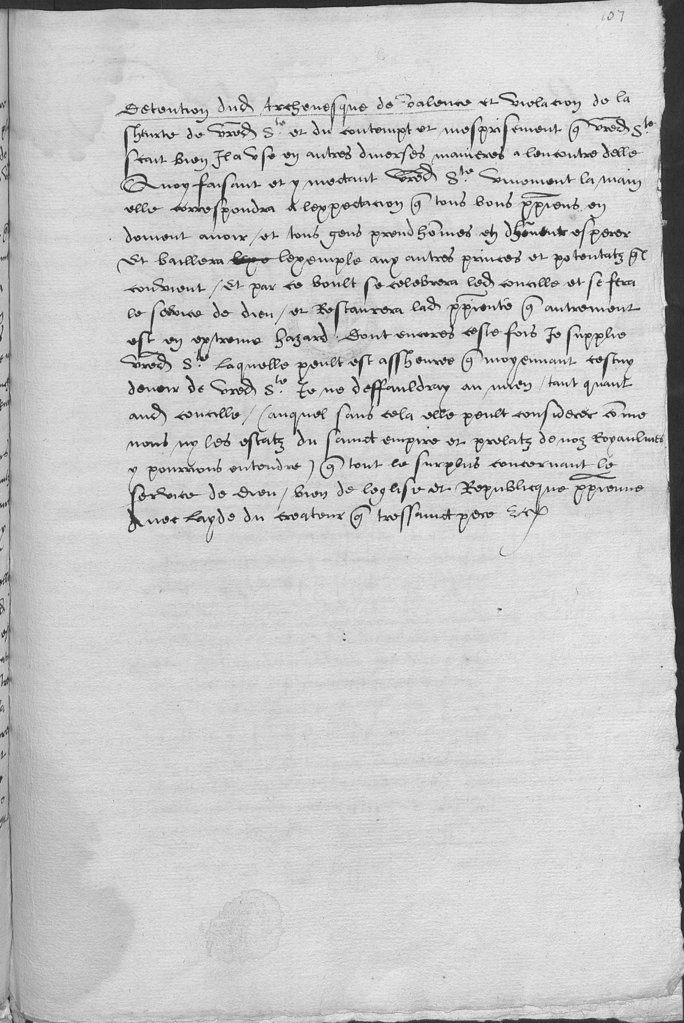 107
Detention dud. Archevesque de valence et violacion de la
sheurte de vred. S.te et du contempt et mesprisement q̃ vred. S.te
scait bien Il a use en autres diverses manieres a lencontre delle
Quoy faisant et y mectant vred. S.te vivement la main
elle correspondra a lexpectacion q̃ tous bons xp̃iens en
doivent avoir / et tous gens preudhõmes et dhõneur esperer
Et baillera lexemple aux autres princes et potentatz q̃l
convient / Et par ce boult se celebrera led. concille et se fera
le service de dieu / et Restaurera lad. xp̃iente q̃ autrement
est en extreme hazard. Dont encores ceste fois Je supplie
vred. S.te laquelle peult est assheuree q̃ moyennant cestuy
devoir de vred. S.te Je ne deffauldray au mien / tant quant
aud. concille / (auquel sans cela elle peult considerer cõme
nous ny les estatz du sainct empire et prelatz de noz Royaulmes
y pourrions entendre) q̃ tout le surplus concernant le
service de dieu / bien de leglise et Republicque xp̃ienne
Avec layde du createur q̃ tressainct pere &c